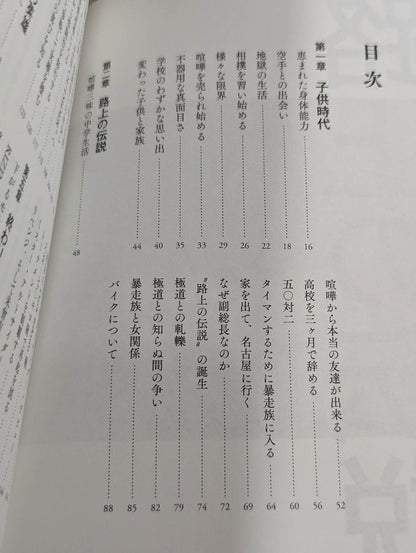 目次
第一章 子供時代
恵まれた身体能力 16
空手との出会い 18
地獄の生活 22
相撲を習い始める 26
様々な限界 29
喧嘩を売られ始める 33
不器用な真面目さ 35
学校のわずかな思い出 40
変わった子供と家族 44
第二章 路上の伝説
喧嘩三昧の中学生活 48
喧嘩から本当の友達が出来る 52
高校を三ヶ月で辞める 56
五〇対二 60
タイマンするために暴走族に入る 64
家を出て、名古屋に行く 69
なぜ副総長なのか 72
〝路上の伝説〟の誕生 74
極道との軋轢 79
極道との知らぬ間の争い 82
暴走族と女関係 85
バイクについて 88